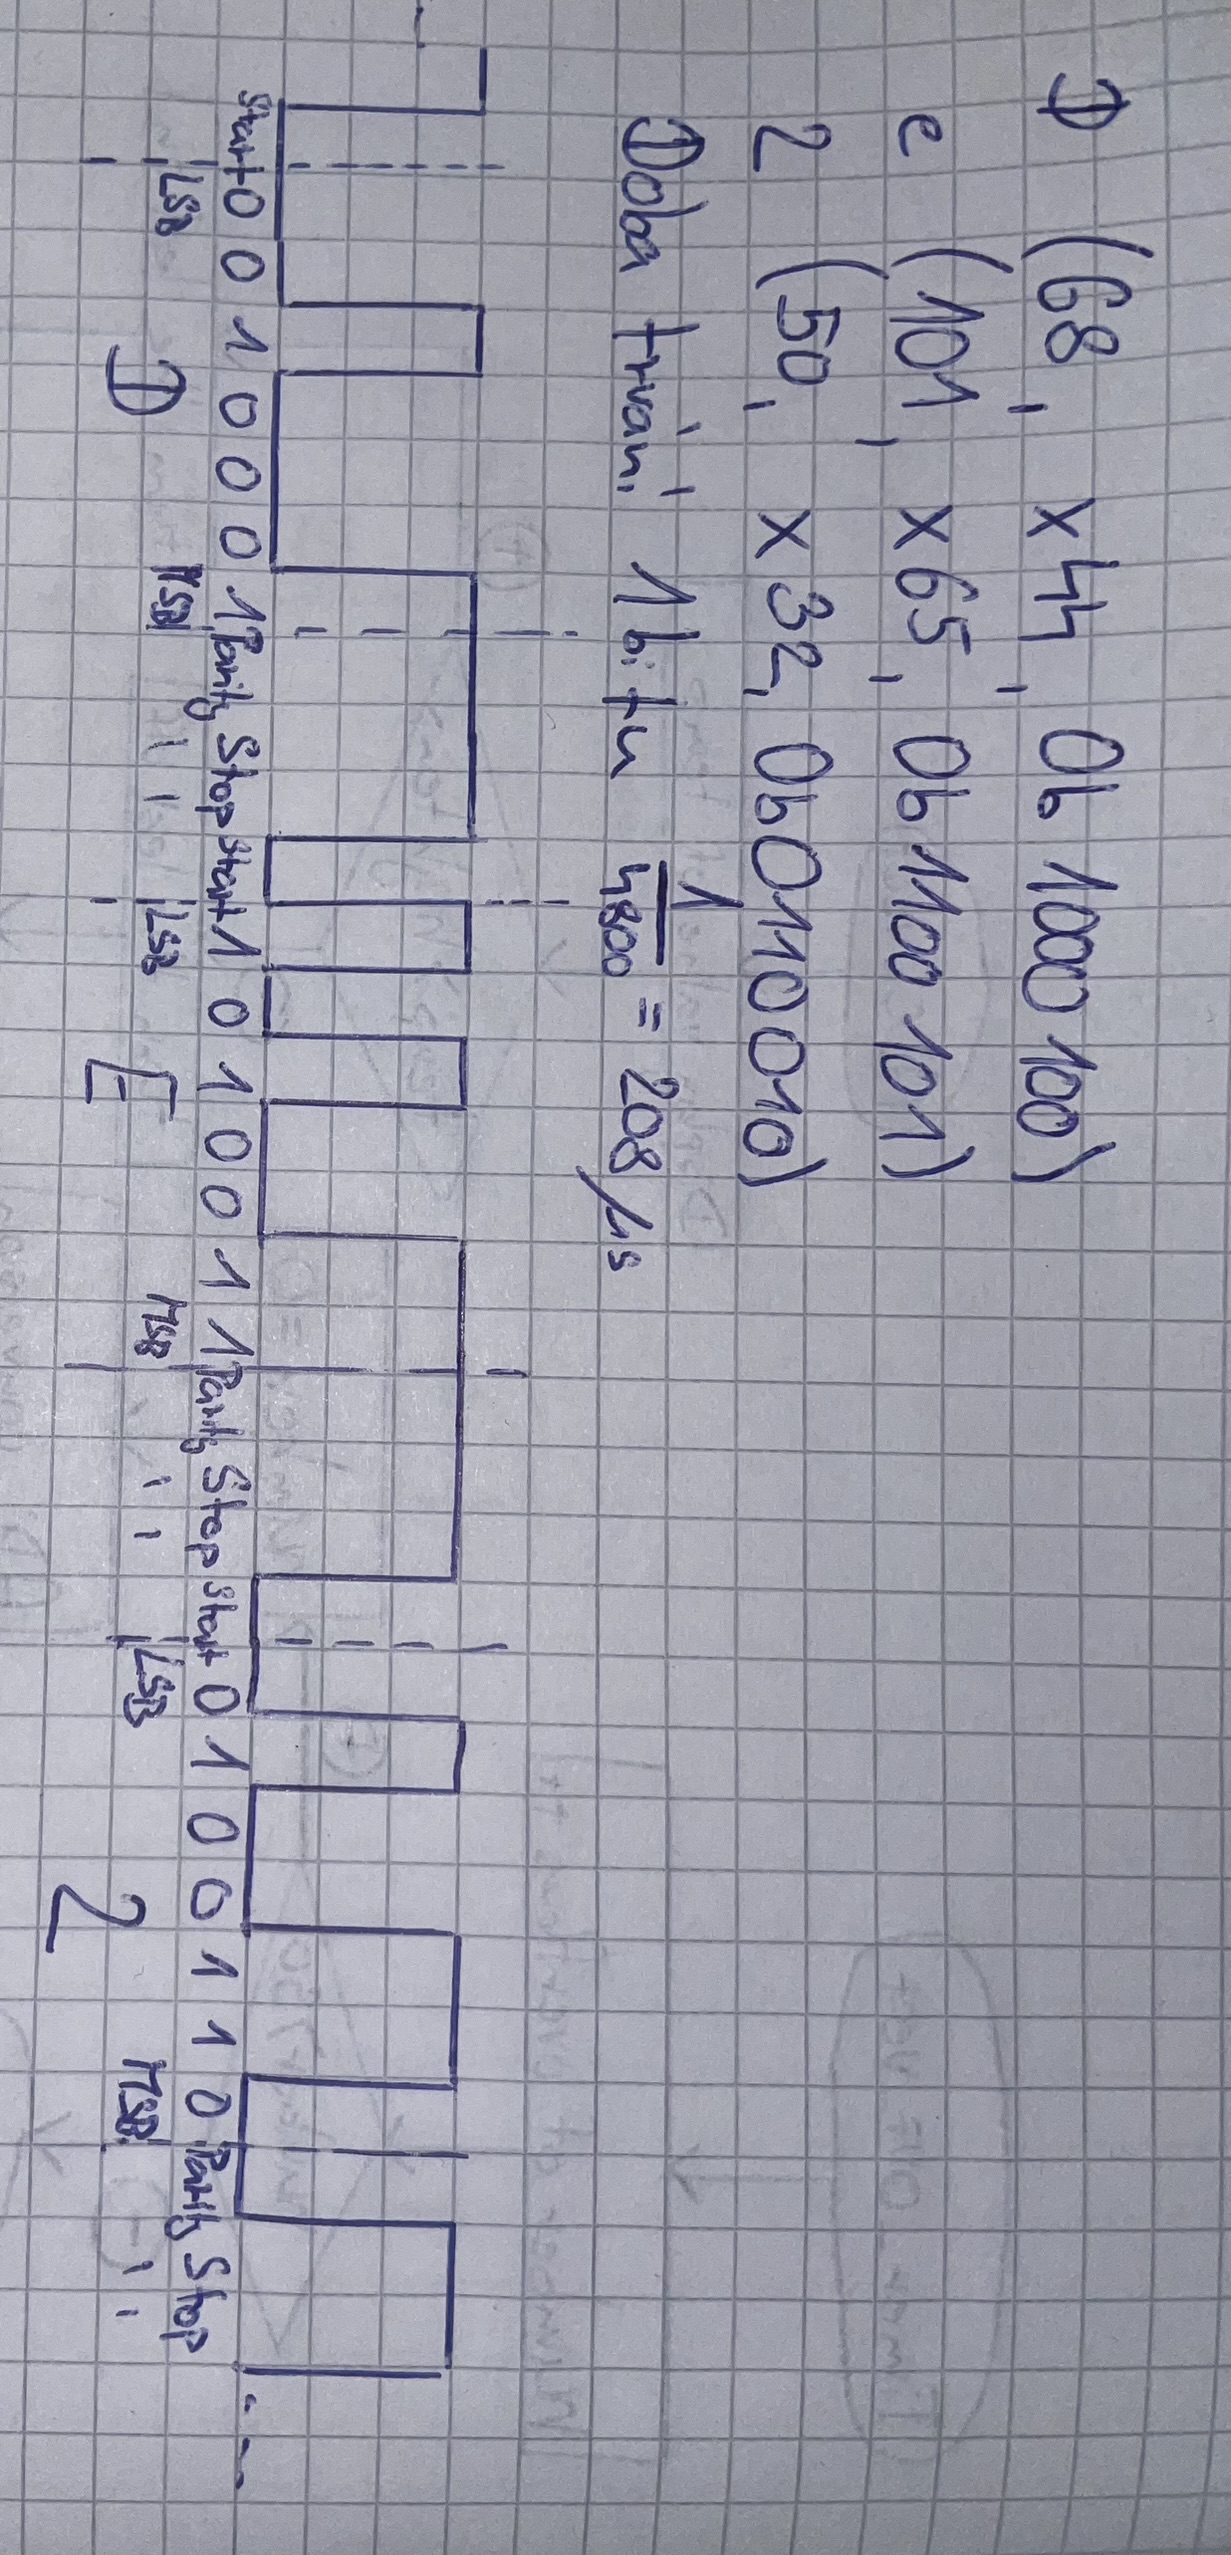 D (68, x44, 0b 1000 100)
e (101, x65, 0b 1100 101)
2 (50, x32, 0b0110010)
Doba trvání 1 bitu 1/4800 = 208 µs
Start 0 0 1 0 0 0 1 Parity Stop Start 1 0 1 0 0 1 1 Parity Stop Start 0 1 0 0 1 1 0 Parity Stop
LSB MSB LSB MSB LSB MSB
D E 2